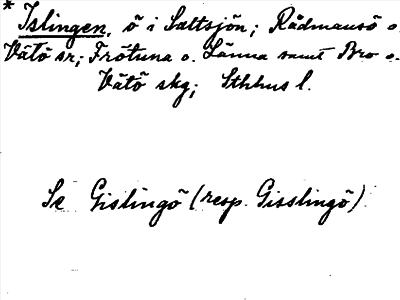 * Islingen, ö i Saltsjön; Rådmansö o.
Vätö sr; Frötuna o. Länna samt Bro o.
Vätö skg; Sthlms l.
Se Gislingö (resp. Gisslingö)